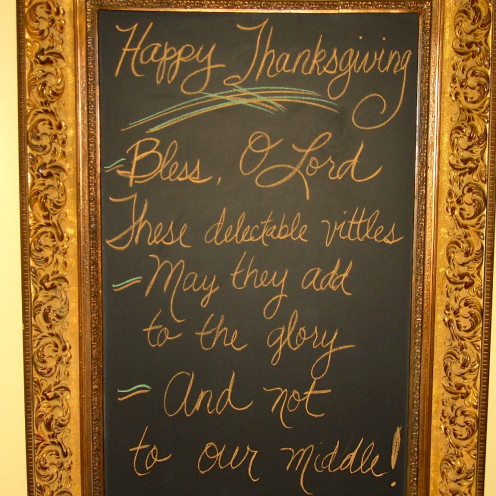 Happy Thanksgiving
Bless, O Lord
These delectable vittles
May they add
to the glory
And not
to our middle!